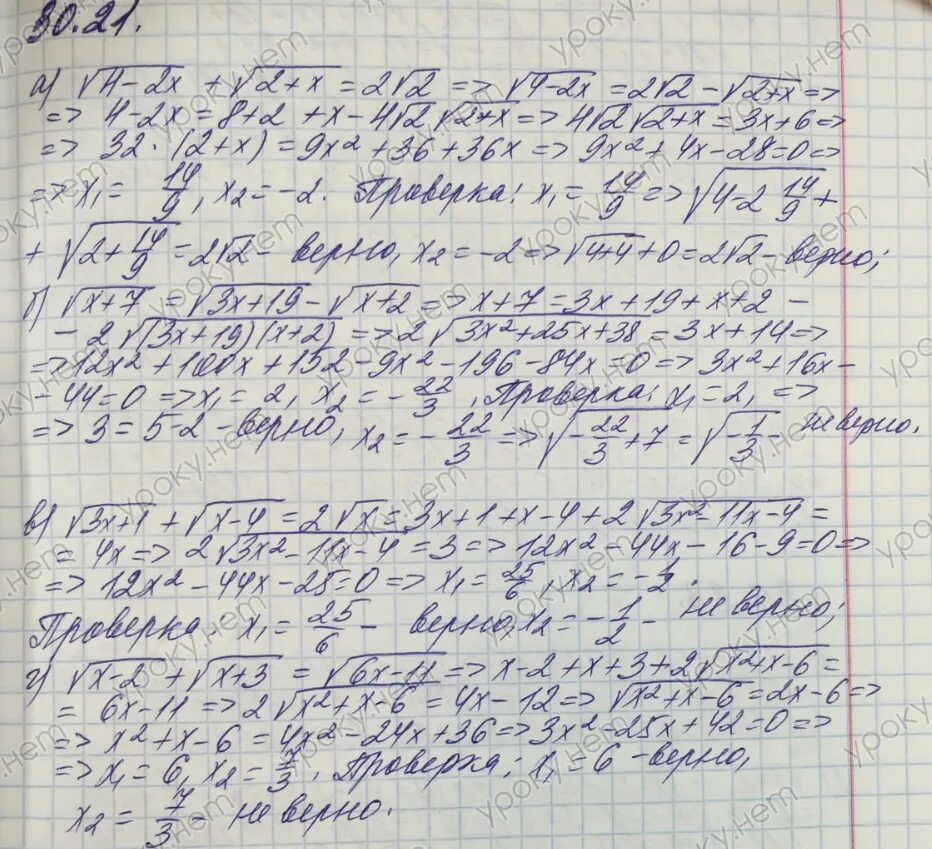 30.21.
а) √4-2x + √2+x = 2√2 => √4-2x = 2√2 - √2+x =>
=> 4-2x = 8+2+x-4√2√2+x => 4√2√2+x = 3x+6 =>
=> 32·(2+x) = 9x²+36+36x => 9x²+4x-28=0 =>
=> x₁ = 14/9, x₂ = -2. Проверка: x₁ = 14/9 => √4-2 14/9 +
+ √2+14/9 = 2√2 - верно, x₂ = -2 => √4+4 + 0 = 2√2 - верно;
б) √x+7 = √3x+19 - √x+2 => x+7 = 3x+19+x+2 -
- 2√(3x+19)(x+2) => 2√3x²+25x+38 = 3x+14 =>
=> 12x²+100x+152-9x²-196-84x=0 => 3x²+16x-
-44=0 => x₁=2, x₂ = -22/3, Проверка: x₁=2, =>
=> 3=5-2 - верно, x₂ = -22/3 => √-22/3+7 = √-1/3 - не верно.
в) √3x+1 + √x-4 = 2√x = 3x+1+x-4+2√3x²-11x-4 =
= 4x => 2√3x²-11x-4 = 3 => 12x²-44x-16-9=0 =>
=> 12x²-44x-25=0 => x₁ = 25/6, x₂ = -1/2.
Проверка: x₁ = 25/6 - верно, x₂ = -1/2 - не верно;
г) √x-2 + √x+3 = √6x-11 => x-2+x+3+2√x²+x-6 =
= 6x-11 => 2√x²+x-6 = 4x-12 => √x²+x-6 = 2x-6 =>
=> x²+x-6 = 4x²-24x+36 => 3x²-25x+42=0 =>
=> x₁=6, x₂ = 7/3, Проверка: x₁=6 - верно,
x₂ = 7/3 - не верно.
уроку.нет